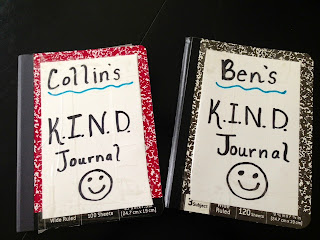 Collin's
K.I.N.D.
Journal
Wide Ruled
100 Sheets
Ben's
K.I.N.D.
Journal
3 Subject
Wide Ruled
120 Sheets